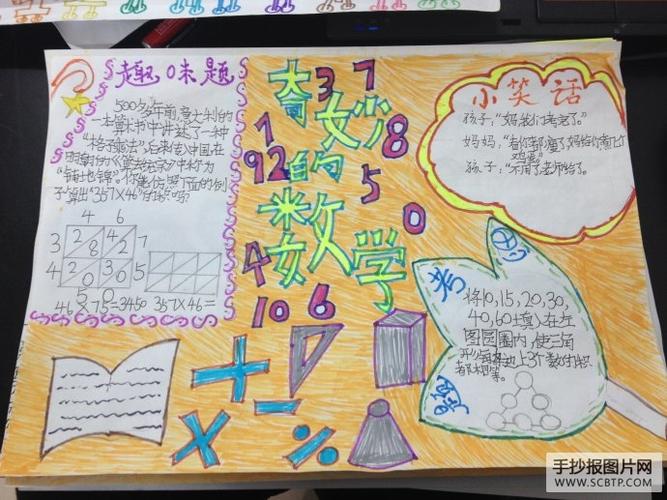 趣味题
500多年前,意大利的
一本算术书中讲述了一种
"格子乘法",后来传入中国,在
明朝的《算法统宗》中称为
"铺地锦"。你能仿照下面的例
子算出"357×46"的积吗?
4 6
3 2 8 4 2 7
4 2 0 3 0 5
5 0
46×75=3450 357×46=
奇妙的数学
3 7
1 8
9 2 5
0
4
10 6
小笑话
孩子:"妈,我们考完了。"
妈妈:
鸡蛋"
孩子:"不用了,老师给了。
思考题
将10,15,20,30,
40,60填入在左
图圆圈内,使三角
形每条边上3个数的积
都相等。
手抄报图片网
WWW.SCBTP.COM